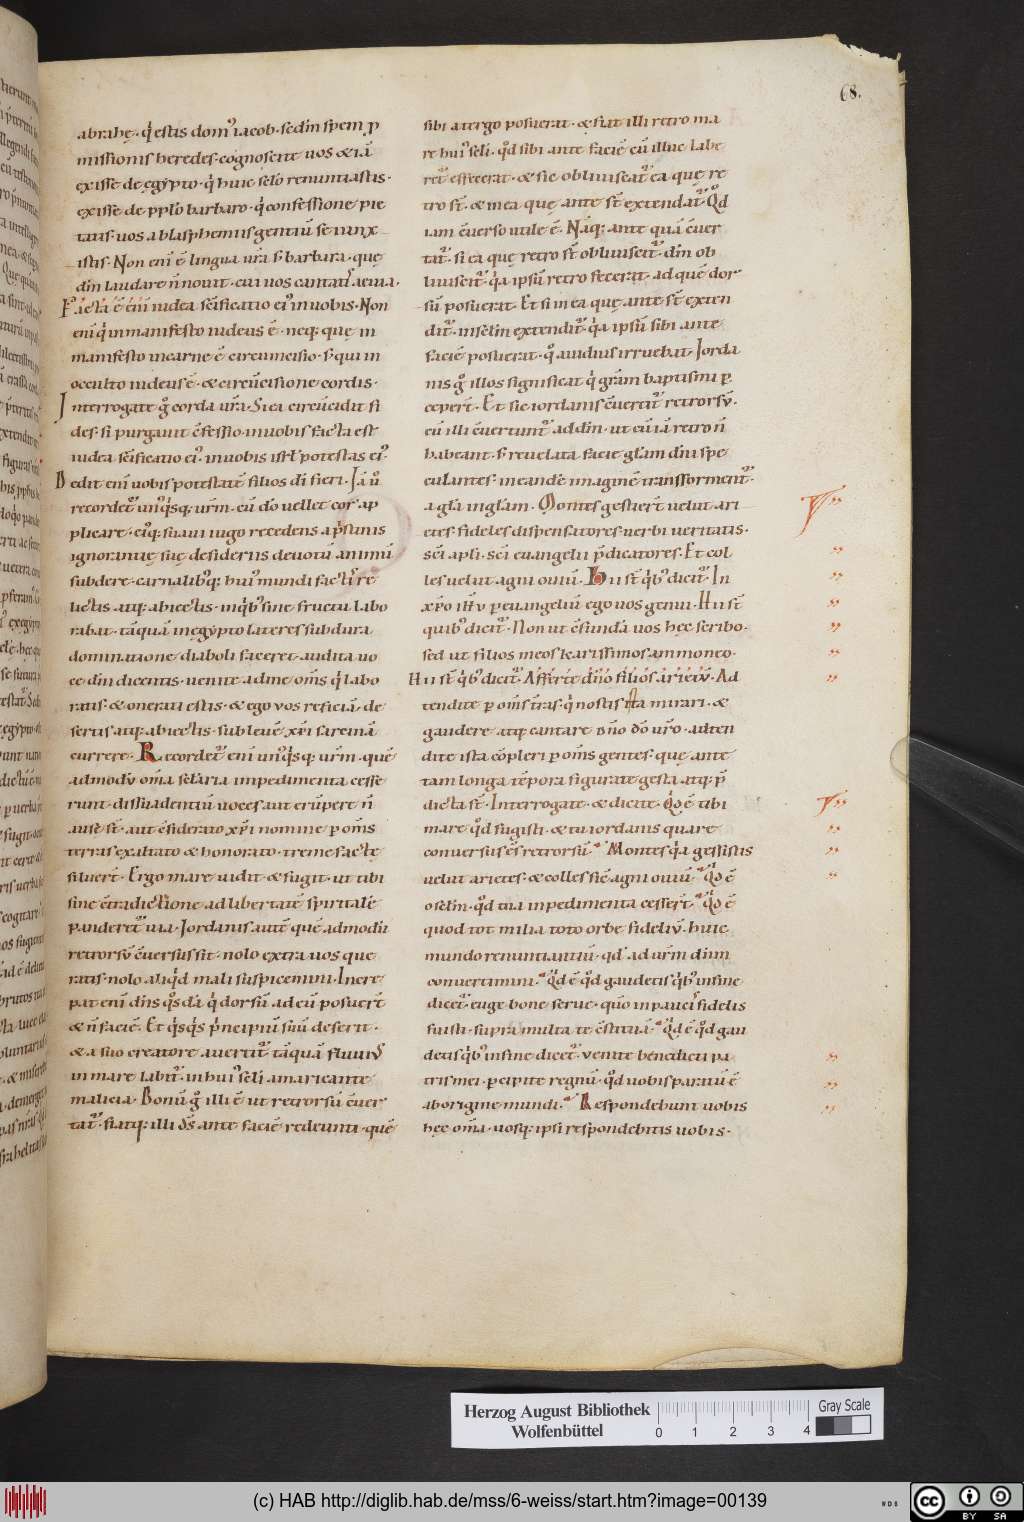 68.
abrahę. q' estis dom' iacob. sed in spem p
missionis heredes. cognoscite uos & iā
exisse de ęgypto. q' huic sęlo renuntiastis.
exisse de pplo barbaro. q' confessione pie
tatis. uos a blasphemiis gentiū seiunx
istis. Non eni ē lingua ur̄a s; barbara. quę
dm̄ laudare n̄ nouit. cui uos cantat' aeuia.
Facta ē eni iudea sc̄ificatio ei' in uobis. Non
eni q' in manifesto iudeus ē. neq; quę in
manifesto in carne ē circumcisio. s; qui in
occulto iudeus ē. & circūcisione cordis.
Interrogate g° corda ur̄a. Si ea circūcidit fi
des. si purgauit cfessio. in uobis facta est
iudea sc̄ificatio ei'. in uobis isrł potestas ei'.
Dedit eni uobis potestatē filios di fieri. Iā ů
recordet' unq'sq; ur̄m. cū do uellet cor ap
plicare. eiq; suaui iugo recedens a p̄stinis
ignorantię suę desideriis deuotū animū
subdere. carnalib'q; hui' mundi factis re
lictis atq; abiectis. in q'b' sine fructu labo
rabat. tāquā in ęgypto lateres sub dura
dominatione diaboli faceret. audita uo
ce dn̄i dicentis. uenite ad me om̄s q' labo
ratis. & onerati estis. & ego uos reficiā. de
sertis atq; abiectis. sub leuē xp̄i sarcinā
currere. Recordet' eni unq'sq; ur̄m. quē
admodū om̄a sclaria impedimenta cesse
runt. dissuadentiū uoces aut erūpere n̄
ausę st̄. aut csiderato xp̄i nomine p om̄s
terras exaltato & honorato. tremefacte
siluer̄t. Ergo mare uidit & fugit. ut tibi
sine ctradictione ad libertatē spiritalē
panderet' uia. Iordanis autē quē admodū
retrorsū cuersus sit. nolo extra uos quę
ratis. nolo aliq'd mali suspicemini. Incre
pat eni dn̄s q°sdā q' dorsū ad eū posuer̄t
& n̄ faciē. Et q'sq's p̄ncipiū suū deserit.
& a suo creatore auertit' tāquā fluuius
in mare labit'. in hui' sęli amaricante
malicia. Bonū g° illi ē ut retrorsū cuer
tat'. sitatq; illi ds̄ ante faciē redeunti. quē
sibi a tergo posuerat. & sit illi retro ma
re hui' seli. q°d sibi ante faciē cū illuc labe
ret' effecerat. & sic obliuiscat' ea quę re
tro st̄. & in ea quę ante st̄ extendat'. Q°d
iam cuerso utile ē. Nāq; ante quā cuer
tat'. si ea quę retro st̄ obliuiscit'. dm̄ ob
liuiscit'. q'a ipsū retro fecerat. ad quē dor
sū posuerat. Et si in ea quę ante st̄ exten
dit'. in sęlm extendit'. q'a ipsū sibi ante
faciē posuerat. q° auidius irruebat. Iorda
nis g° illos significat q' gr̄am baptismi p
ceper̄t. Et sic iordanis cuertit' retrorsū.
cū illi cuertunt' ad dm̄. ut eū iā retro n̄
habeant. s; reuelata facie glam dn̄i spe
culantes. in eandē imaginē transforment'.
a gla in glam. Montes gestier̄t uelut ari
etes. fideles dispensatores uerbi ueritatis.
sc̄i apli. sc̄i euangelii p̄dicatores. Et col
les uelut agni ouiū. Hii st̄ q'b' dicit'. In
xp̄o ihu p euangeliū ego uos genui. Hii st̄
quib' dicit'. Non ut cfundā uos hęc scribo.
sed ut filios meos karissimos ammoneo.
Hii st̄ q'b' dicit'. Afferte dn̄o filios arietū. Ad
tendite p om̄s t̄ras. q' nostis ista mirari. &
gaudere atq; cantare dn̄o do ur̄o. adten
dite ista cpleri p om̄s gentes. quę ante
tam longa tēpora figurate gesta atq; p̄
dicta st̄. Interrogate. & dicite. Q°d ē tibi
mare q°d fugisti. & tu iordanis quare
conuersus es retrorsū. Montes q'a gessistis
uelut arietes. & colles sic agni ouiū. Q°d ē
o sęlm. q°d tua inpedimenta cesser̄t. Q°d ē
quod tot milia toto orbe fideliū. huic
mundo renuntiantiū. q°d ad ur̄m dnm
conuertimini. Q°d ē q°d gaudetis q'b' in fine
dicet'. euge bone serue. quo in pauci' fidelis
fuisti. supra multa te cstituā. Q°d ē q°d gau
detis q'b' in fine dicet'. uenite benedicti pa
tris mei. pcipite regnū. q°d uobis paratū ē
ab origine mundi. Respondebunt uobis
hęc om̄a. uosq; ipsi respondebitis uobis.
Herzog August Bibliothek
Wolfenbüttel
0 1 2 3 4
Gray Scale
(c) HAB http://diglib.hab.de/mss/6-weiss/start.htm?image=00139
cc BY SA